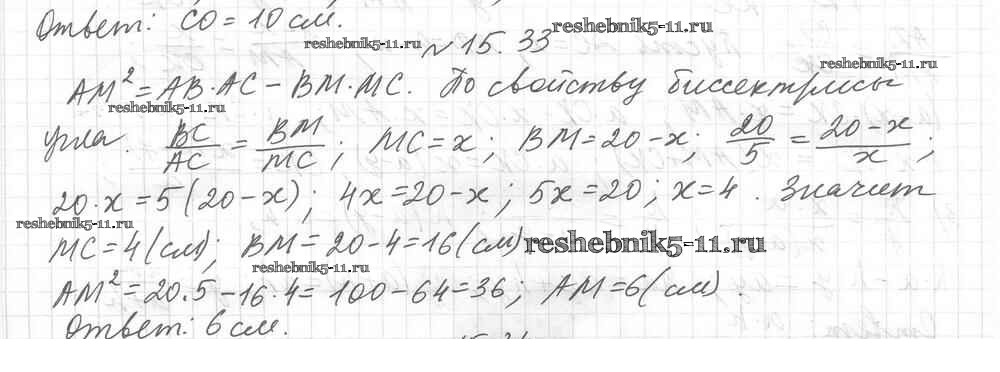 Ответ: CO = 10 см.
reshebnik5-11.ru
reshebnik5-11.ru
№ 15.33
reshebnik5-11.ru
AM² = AB·AC − BM·MC. По свойству биссектрисы
reshebnik5-11.ru
угла. BC/AC = BM/MC; MC = x; BM = 20 − x; 20/5 = (20 − x)/x;
20·x = 5(20 − x); 4x = 20 − x; 5x = 20; x = 4. Значит
reshebnik5-11.ru
MC = 4 (см); BM = 20 − 4 = 16 (см)
reshebnik5-11.ru
reshebnik5-11.ru
AM² = 20·5 − 16·4 = 100 − 64 = 36; AM = 6 (см).
Ответ: 6 см.